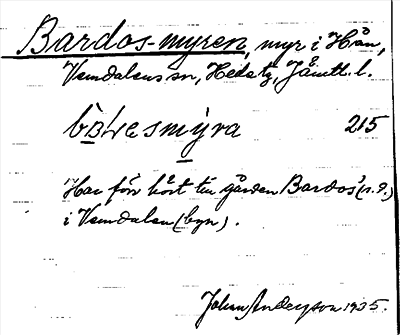 Bardos-myren, myr i Hån,
Vemdalens sn, Hede tg, Jämtl. l.
215
Har förr hört till gården Bardos' (s. d.)
i Vemdalen (byn).
Johan Anderson 1935.